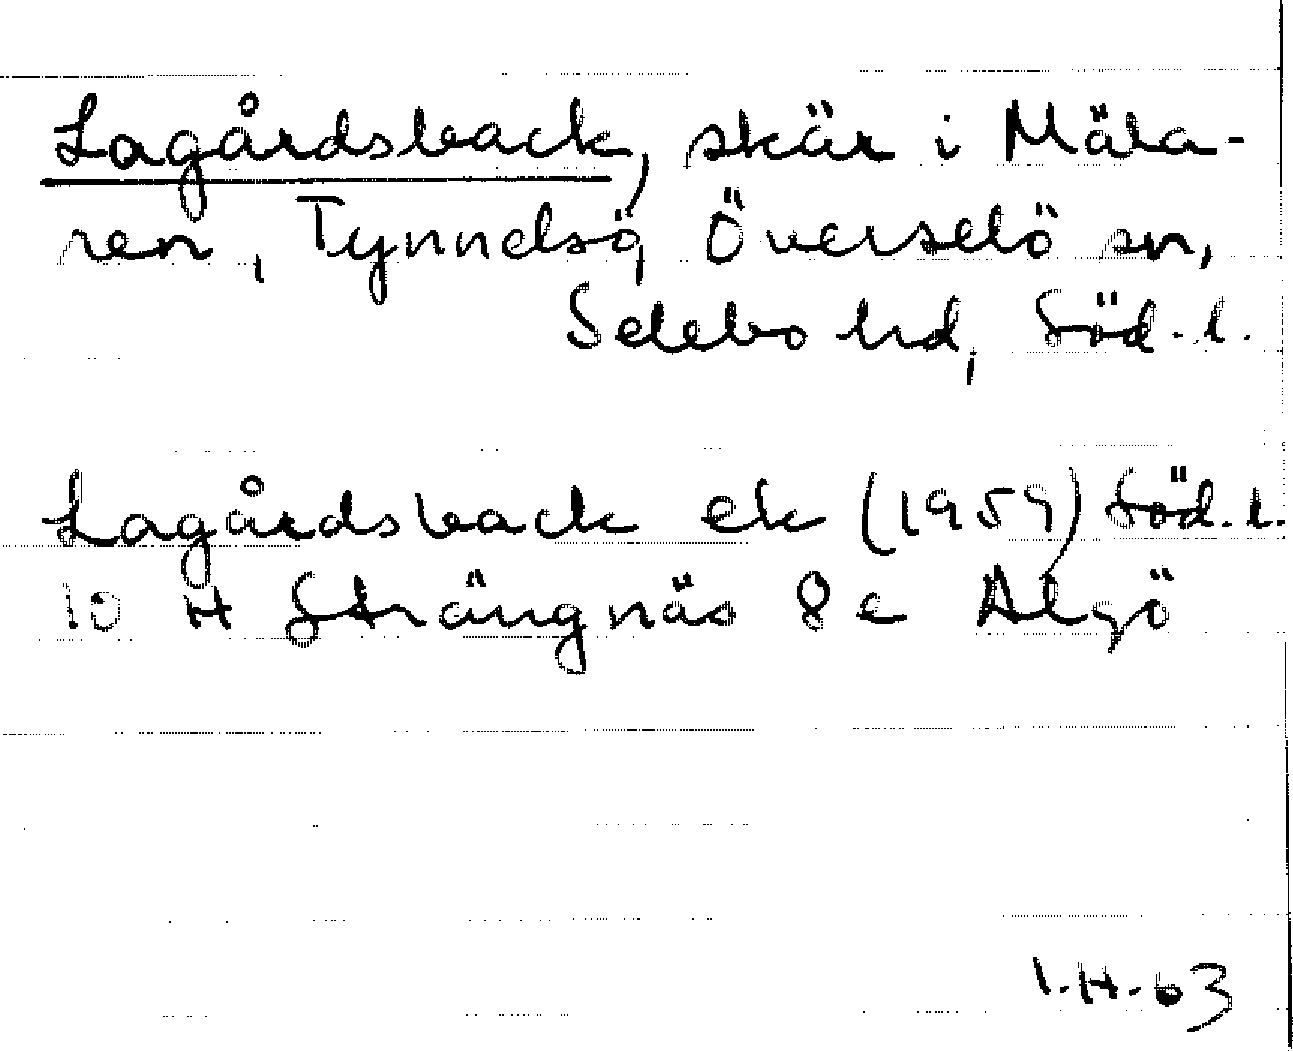 Lagårdsback, skär i Mäla-
ren, Tynnelsö, Överselö sn,
Selebo hd, Söd.l.
Lagårdsback ek (1959) Söd.l.
10 H Strängnäs 8 e Algö
I.H.63